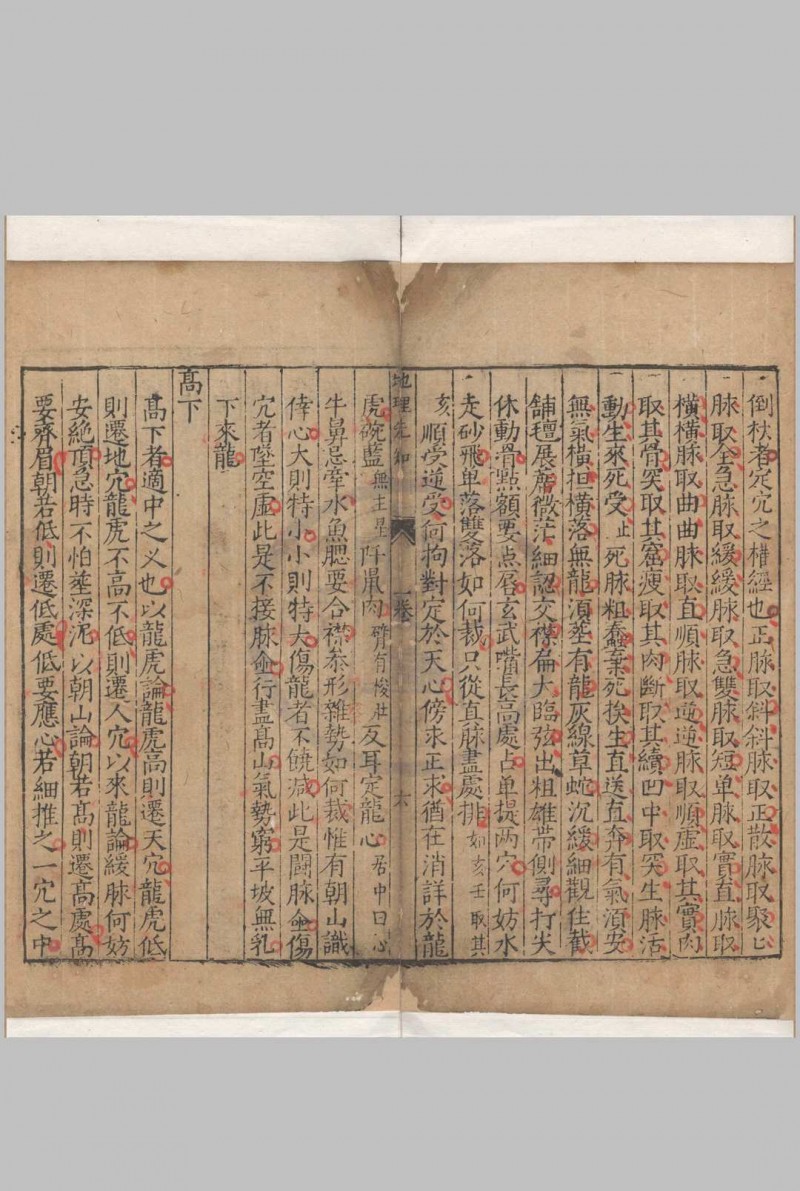 倒杖者定穴之楷經也正脉取斜斜脉取正散脉取聚亡
脉取全急脉取緩緩脉取急雙脉取短单脉取實直脉取
橫橫脉取曲曲脉取直順脉取逆逆脉取順虛取其實肉
取其骨突取其窟瘦取其肉断取其續凹中取突生脉活
動生來死受止死脉粗蠢棄死挨生直送直奔有氣湏安
無氣橫担橫落無龍湏塟有龍灰線草蛇沉緩細觀住截
舖氊展席微茫細認交襟侖大臨弦出粗雄帶側尋打尖
休動滑點額要点唇玄武嘴長高處占单提两穴何妨水
走砂飛单落雙落如何裁只從直脉盡處排如亥壬取其
亥順受逆受何拘對定於天心傍求正求猶在消詳於龍
地理先知 一卷 六
虎碗藍無主星阡鼠肉瘠有梭壯反耳定龍心居中曰心
牛鼻忌牽水魚腮要合襟叅形雜勢如何裁惟有朝山識
倖心大則特小小則特大傷龍者不饒减此是鬪脉僉傷
穴者墜空虛此是不接脉僉行盡髙山氣勢窮平坡無乳
下來龍
髙下
髙下者適中之义也以龍虎論龍虎高則遷天穴龍虎低
則遷地穴龍虎不高不低則遷人穴以來龍論緩脉何妨
安絶頂急時不怕塟深泥以朝山論朝若髙則遷高處髙
要齊眉朝若低則遷低處低要應心若細推之一穴之中